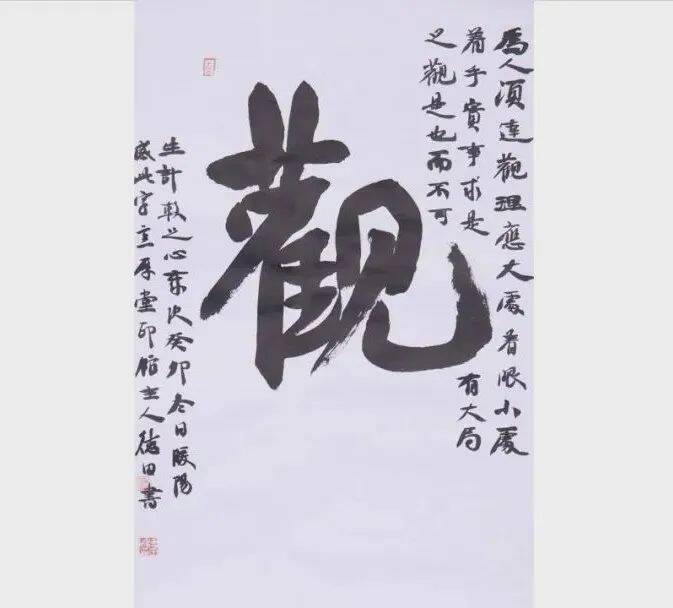 爲人須達觀理應大處着眼小處
着手實事求是有大局
之觀是也而不可
觀
生計較之心歲次癸卯冬日暖陽
成此字堂印館主人德田書